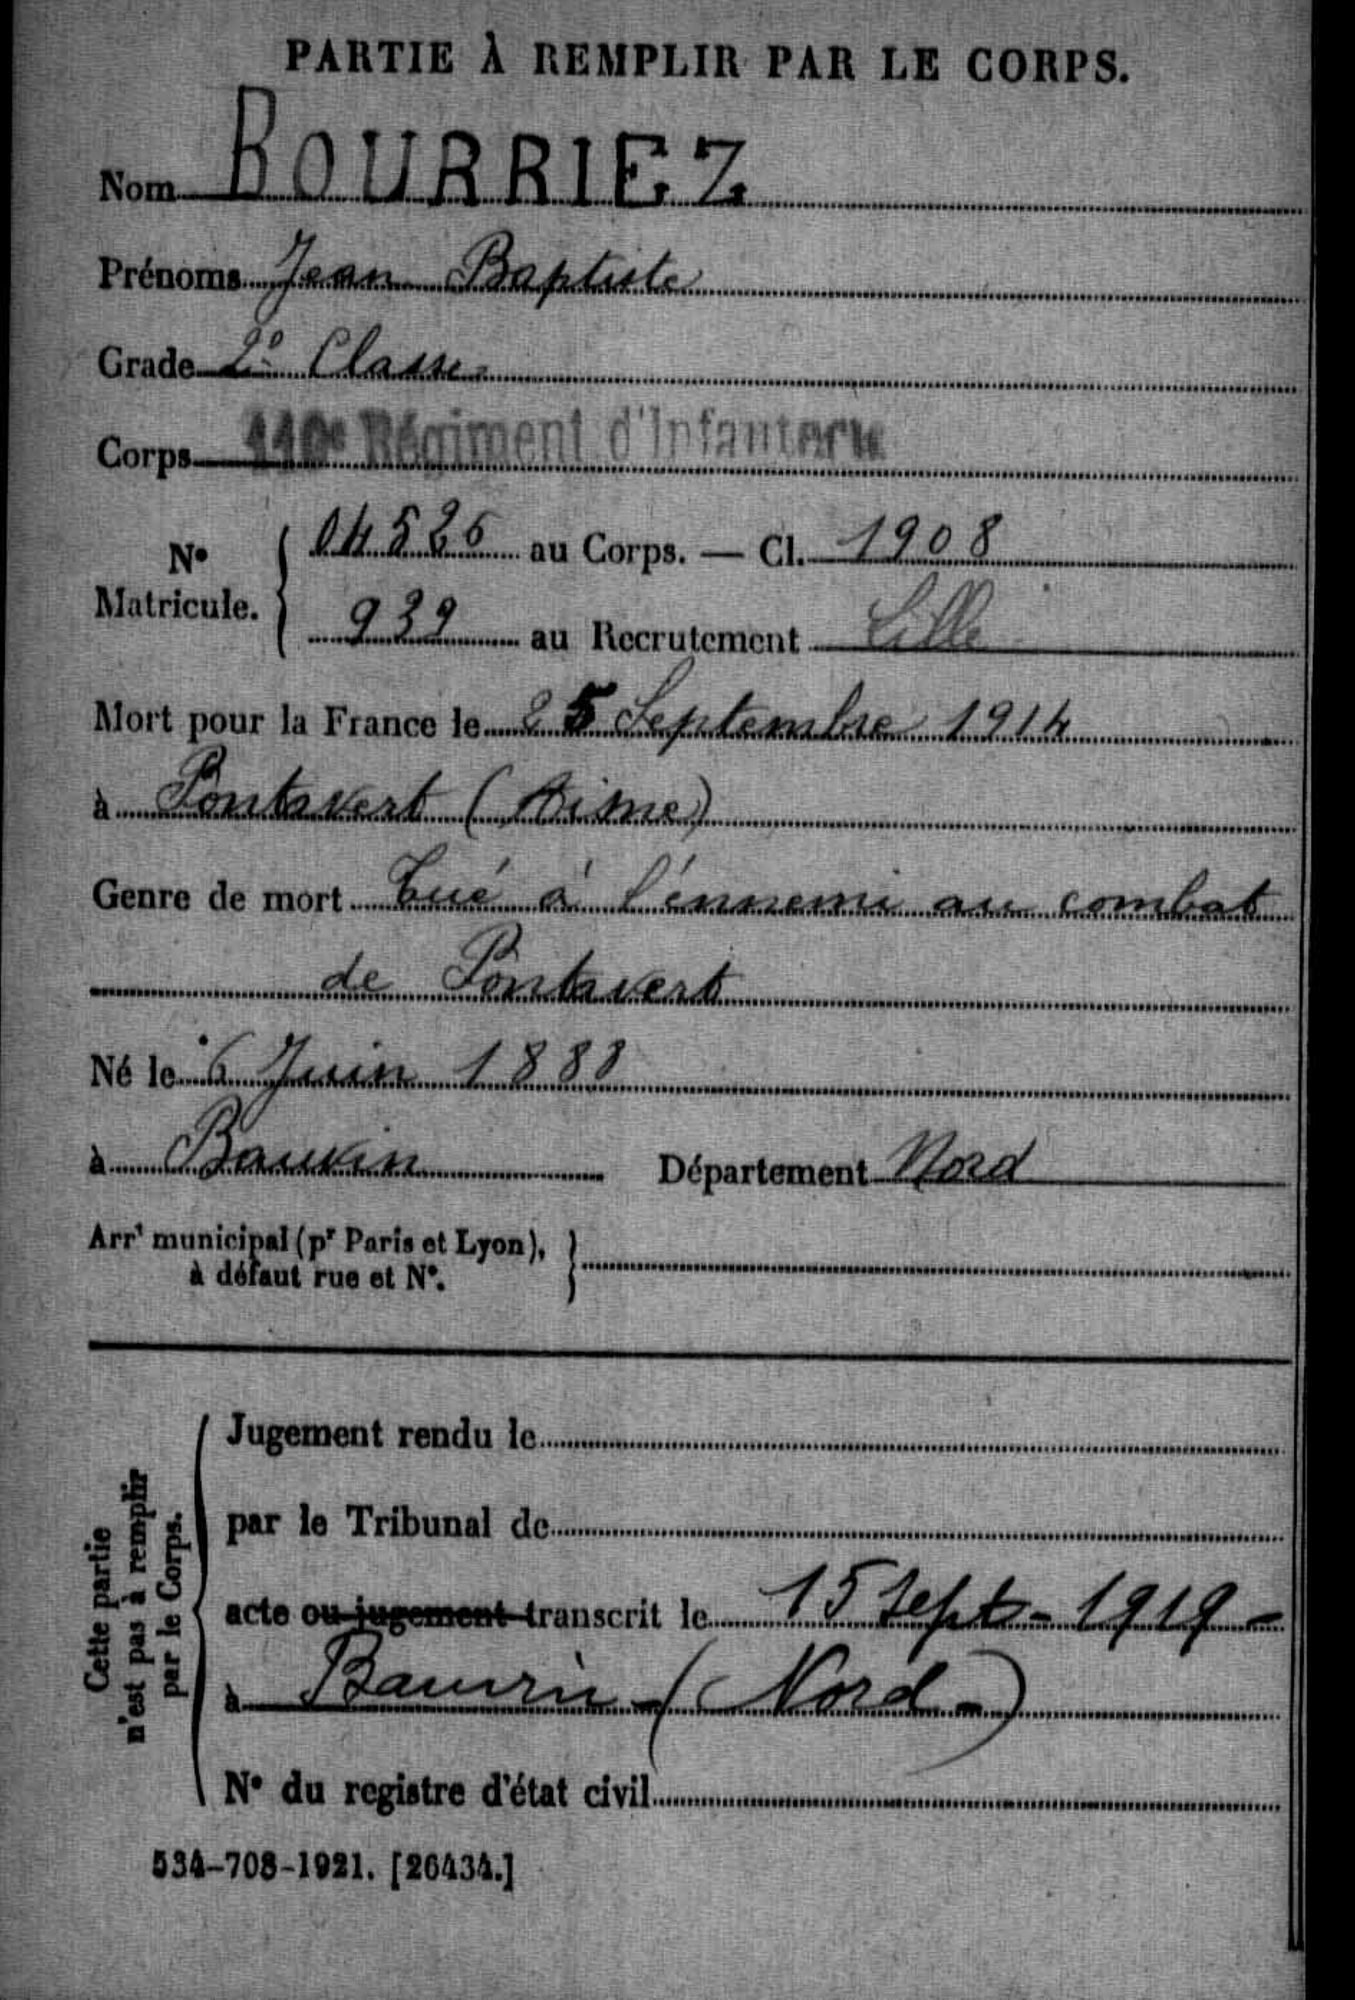 PARTIE À REMPLIR PAR LE CORPS.
Nom BOURRIEZ
Prénoms Jean Baptiste
Grade 2e Classe
Corps 110e Régiment d'Infanterie
No Matricule. { 04526 au Corps. — Cl. 1908
939 au Recrutement Lille
Mort pour la France le 25 Septembre 1914
à Pontavert (Aisne)
Genre de mort Tué à l'énnemi au combat
de Pontavert
Né le 6 Juin 1888
à Bauvin Département Nord
Arrt municipal (pr Paris et Lyon),
à défaut rue et No.
Cette partie
n'est pas à remplir
par le Corps.
Jugement rendu le
par le Tribunal de
acte ou jugement transcrit le 15 Sept - 1919 -
à Bauvin - (Nord -)
No du registre d'état civil
534-708-1921. [26434.]